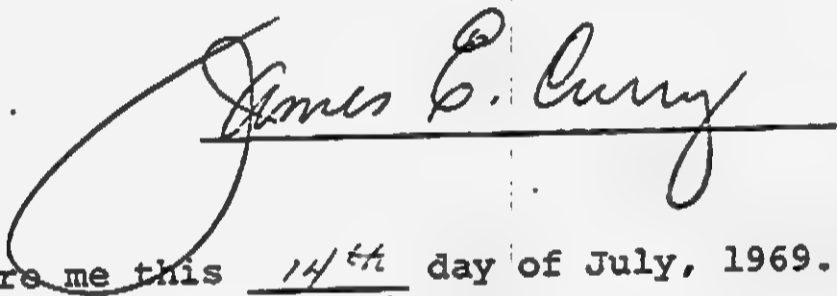 James E. Curry
re me this 14th day of July, 1969.